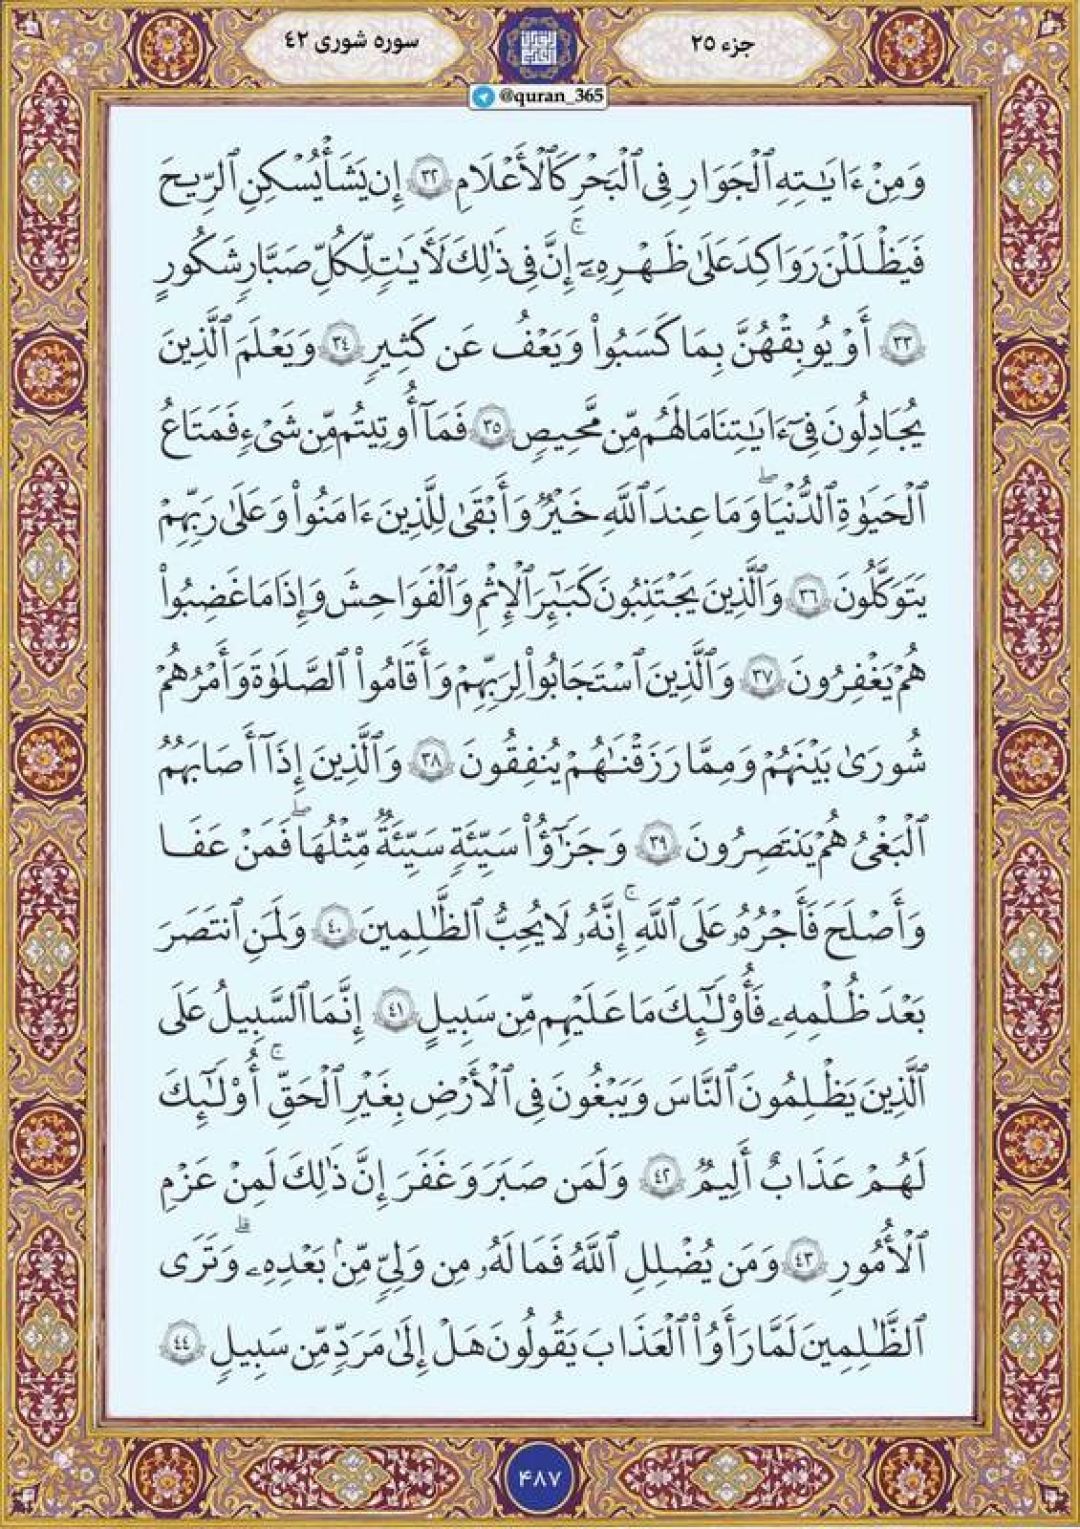 جزء ۲۵
سوره شوری ۴۲
@quran_365
وَمِنْ ءَايَـٰتِهِ ٱلْجَوَارِ فِى ٱلْبَحْرِ كَٱلْأَعْلَـٰمِ ٣٢ إِن يَشَأْ يُسْكِنِ ٱلرِّيحَ
فَيَظْلَلْنَ رَوَاكِدَ عَلَىٰ ظَهْرِهِۦٓ ۚ إِنَّ فِى ذَٰلِكَ لَـَٔايَـٰتٍ لِّكُلِّ صَبَّارٍ شَكُورٍ
٣٣ أَوْ يُوبِقْهُنَّ بِمَا كَسَبُوا۟ وَيَعْفُ عَن كَثِيرٍ ٣٤ وَيَعْلَمَ ٱلَّذِينَ
يُجَـٰدِلُونَ فِىٓ ءَايَـٰتِنَا مَا لَهُم مِّن مَّحِيصٍ ٣٥ فَمَآ أُوتِيتُم مِّن شَىْءٍ فَمَتَـٰعُ
ٱلْحَيَوٰةِ ٱلدُّنْيَا ۖ وَمَا عِندَ ٱللَّهِ خَيْرٌ وَأَبْقَىٰ لِلَّذِينَ ءَامَنُوا۟ وَعَلَىٰ رَبِّهِمْ
يَتَوَكَّلُونَ ٣٦ وَٱلَّذِينَ يَجْتَنِبُونَ كَبَـٰٓئِرَ ٱلْإِثْمِ وَٱلْفَوَٰحِشَ وَإِذَا مَا غَضِبُوا۟
هُمْ يَغْفِرُونَ ٣٧ وَٱلَّذِينَ ٱسْتَجَابُوا۟ لِرَبِّهِمْ وَأَقَامُوا۟ ٱلصَّلَوٰةَ وَأَمْرُهُمْ
شُورَىٰ بَيْنَهُمْ وَمِمَّا رَزَقْنَـٰهُمْ يُنفِقُونَ ٣٨ وَٱلَّذِينَ إِذَآ أَصَابَهُمُ
ٱلْبَغْىُ هُمْ يَنتَصِرُونَ ٣٩ وَجَزَٰٓؤُا۟ سَيِّئَةٍ سَيِّئَةٌ مِّثْلُهَا ۖ فَمَنْ عَفَا
وَأَصْلَحَ فَأَجْرُهُۥ عَلَى ٱللَّهِ ۚ إِنَّهُۥ لَا يُحِبُّ ٱلظَّـٰلِمِينَ ٤٠ وَلَمَنِ ٱنتَصَرَ
بَعْدَ ظُلْمِهِۦ فَأُو۟لَـٰٓئِكَ مَا عَلَيْهِم مِّن سَبِيلٍ ٤١ إِنَّمَا ٱلسَّبِيلُ عَلَى
ٱلَّذِينَ يَظْلِمُونَ ٱلنَّاسَ وَيَبْغُونَ فِى ٱلْأَرْضِ بِغَيْرِ ٱلْحَقِّ ۚ أُو۟لَـٰٓئِكَ
لَهُمْ عَذَابٌ أَلِيمٌ ٤٢ وَلَمَن صَبَرَ وَغَفَرَ إِنَّ ذَٰلِكَ لَمِنْ عَزْمِ
ٱلْأُمُورِ ٤٣ وَمَن يُضْلِلِ ٱللَّهُ فَمَا لَهُۥ مِن وَلِىٍّ مِّنۢ بَعْدِهِۦ ۗ وَتَرَى
ٱلظَّـٰلِمِينَ لَمَّا رَأَوُا۟ ٱلْعَذَابَ يَقُولُونَ هَلْ إِلَىٰ مَرَدٍّ مِّن سَبِيلٍ ٤٤
۴۸۷